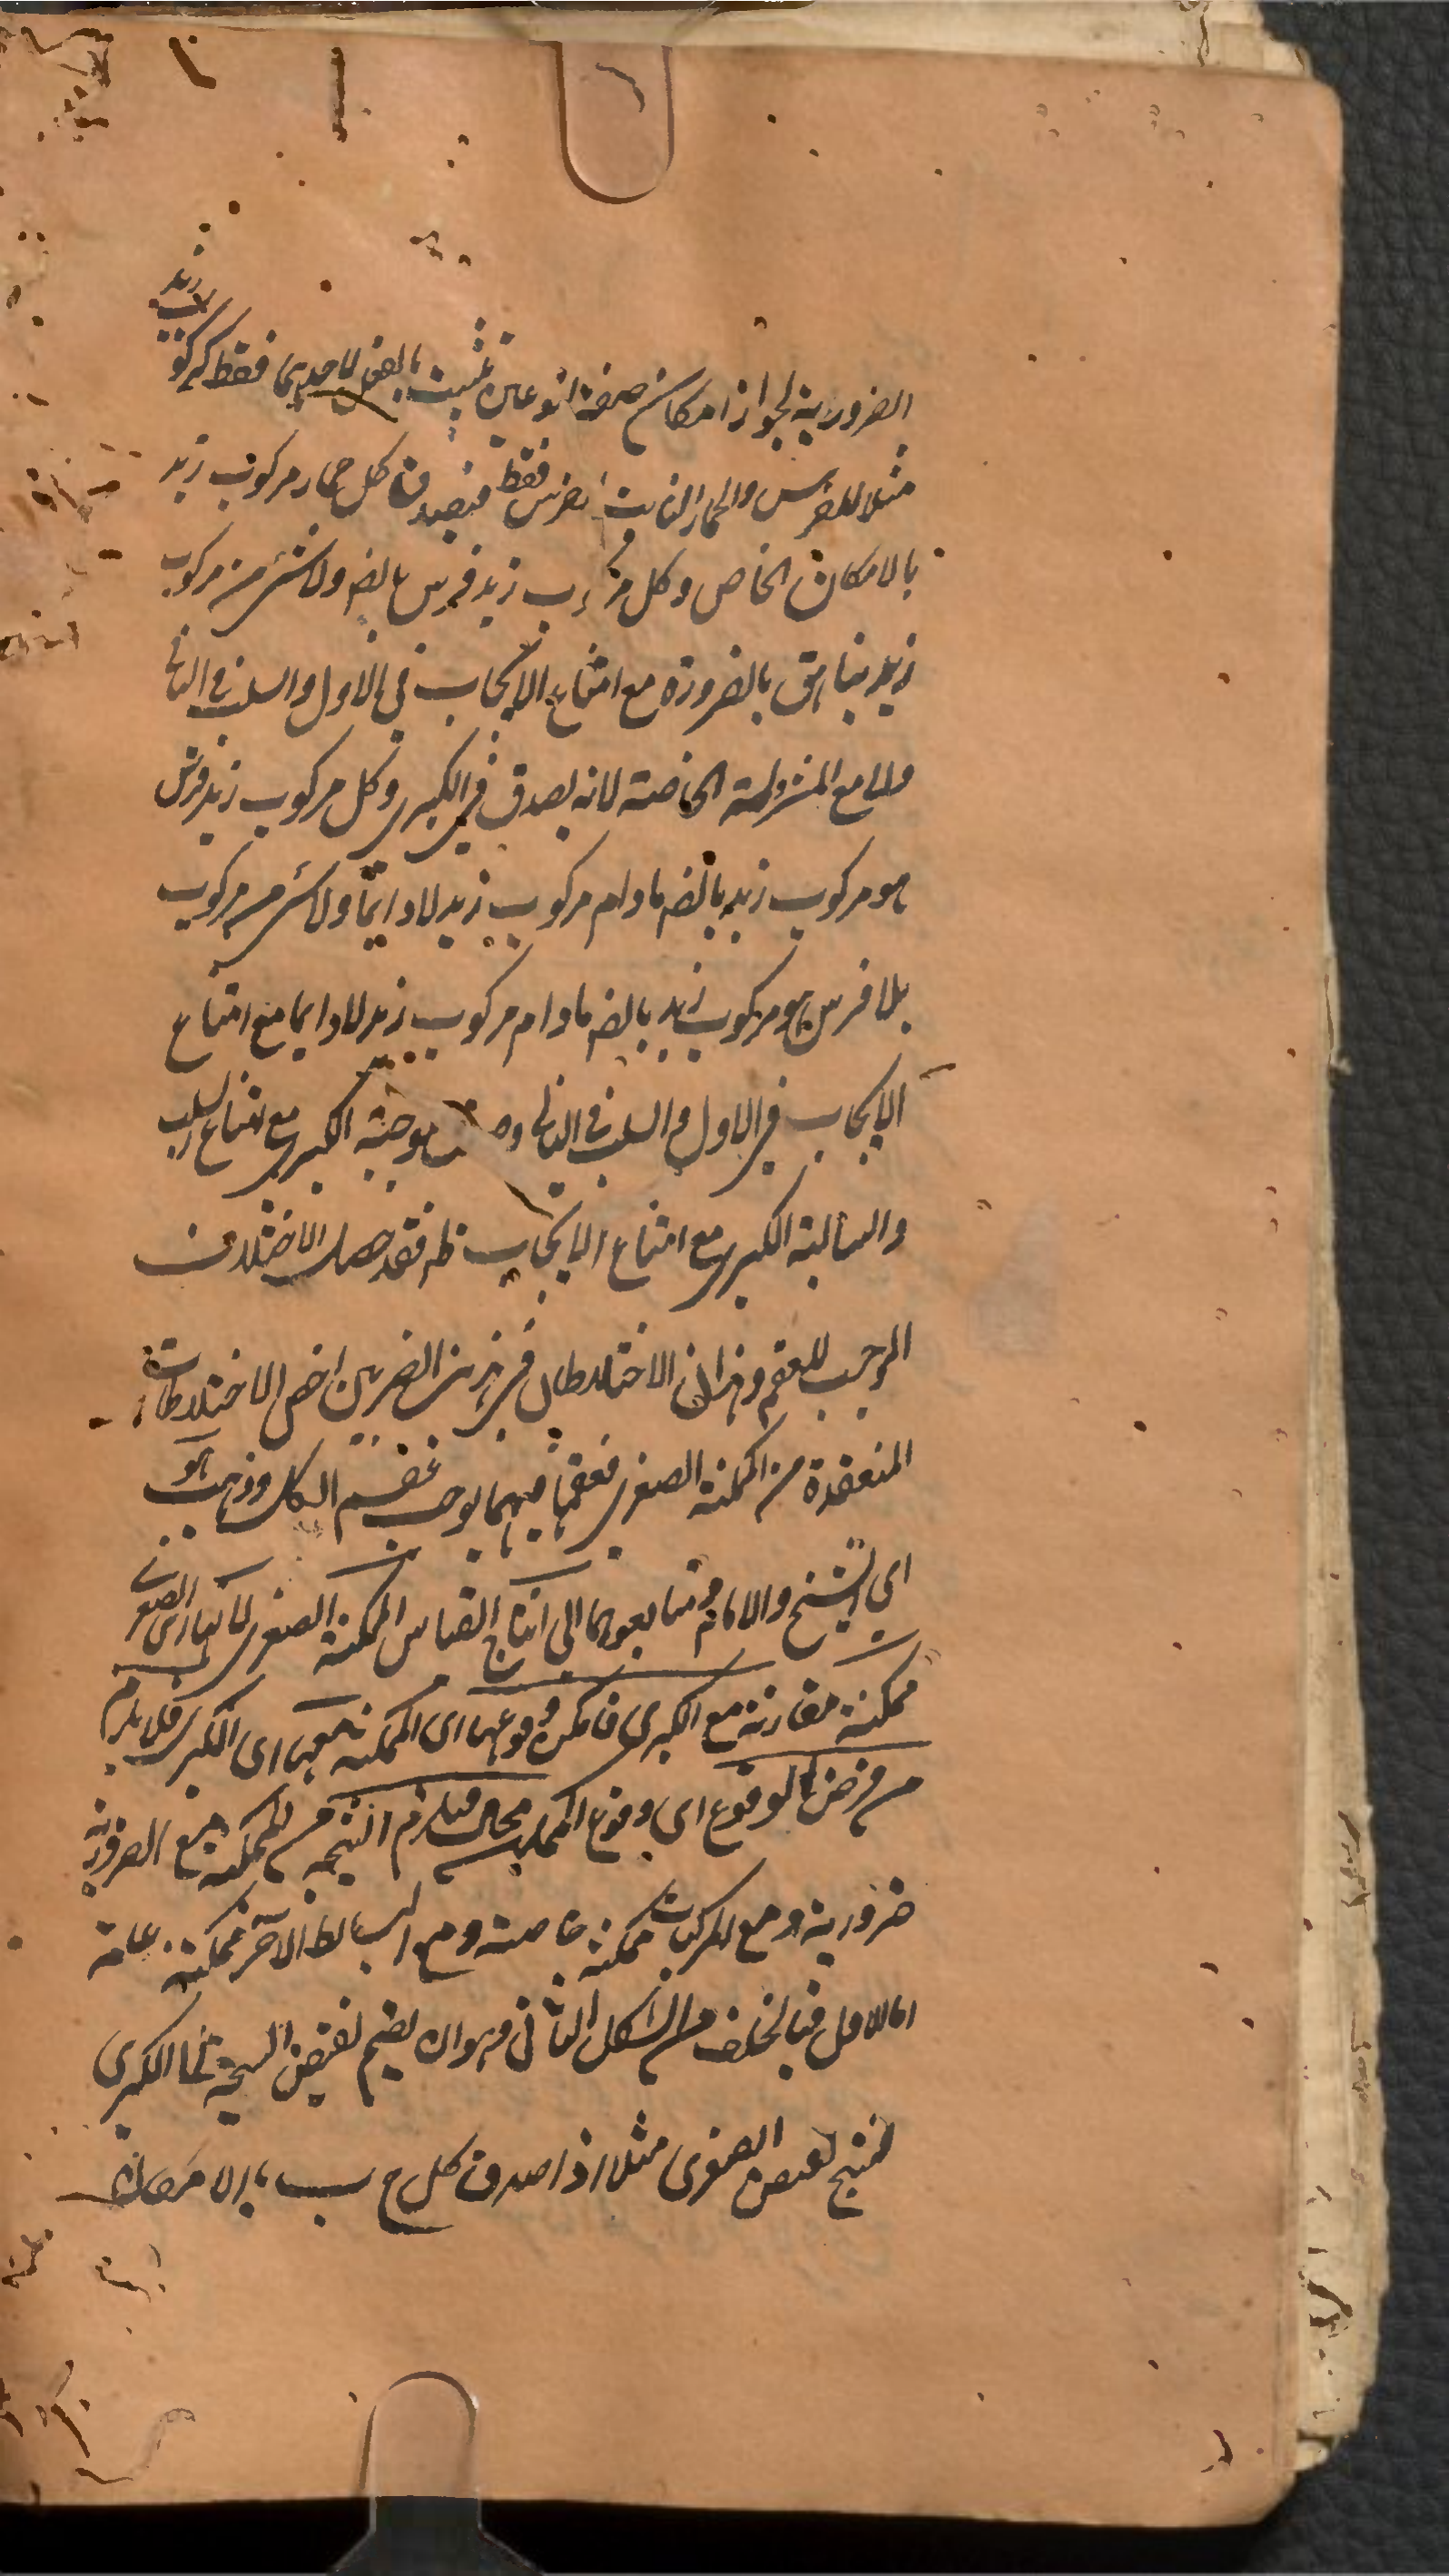 الضرورية لجواز امكان صفة لنوعين تثبت بالفعل لاحديهما فقط كمركوب زيد
مثلا للفرس والحمار الثابت للفرس فقط فيصدق كل حمار مركوب زيد
بالامكان الخاص وكل مركوب زيد فرس بالضر ولا شئ من مركوب
زيد بناهق بالضرورة مع امتناع الايجاب في الاول والسلب في الثاني
واما مع المشروطة الخاصة لانه يصدق في الكبرى وكل مركوب زيد فرس
هو مركوب زيد بالضر مادام مركوب زيد لا دايما ولا شئ من مركوب
بلا فرس هو مركوب زيد بالضر مادام مركوب زيد لا دايما مع امتناع
الايجاب في الاول والسلب في الثاني موجبة الكبرى مع امتناع السلب
والسالبة الكبرى مع امتناع الايجاب ظه فقد حصل الاختلاف
الموجب للعقم وهذان الاختلاطان في هذين الضربين اخص الاختلاطات
المنعقدة من الممكنة الصغرى فعقمها فيهما يوجب عقم الكل وذهب هو
اي الشيخ والامام ومتابعوهما الى انتاج القياس الممكنة الصغرى لانها اى الصغرى
ممكنة مقارنة مع الكبرى فامكن وقوعها اى الممكنة معها اى الكبرى فلا يلزم
من فرض الوقوع اى وقوع الممكنة محال فيلزم النتيجة من الممكنة مع الضرورية
ضرورية ومع المركبات ممكنة خاصة ومع البسائط الاخر ممكنة عامة
اما الاول فبالخلف من الشكل الثاني وهو ان يضم نقيض النتيجة الى الكبرى
لينتج نقيض الصغرى مثلا اذا صدق كل ج ب بالامكان